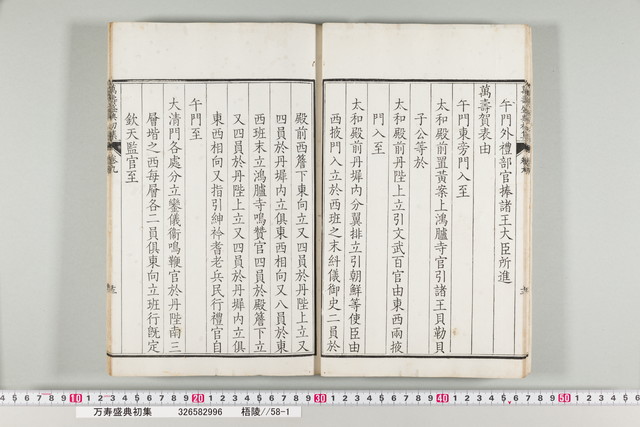 午門外禮部官捧諸王大臣所進
萬壽賀表由
午門東旁門入至
太和殿前置黃案上鴻臚寺官引諸王貝勒貝
子公等於
太和殿前丹陛上立引文武百官由東西兩掖
門入至
太和殿前丹墀內分翼排立引朝鮮等使臣由
西掖門入立於西班之末糾儀御史二員於
殿前西簷下東向立又四員於丹陛上立又
四員於丹墀內立俱東西相向又八員於東
西班末立鴻臚寺鳴贊官四員於殿簷下立
又四員於丹陛上立又四員於丹墀內立俱
東西相向又指引紳衿耆老兵民行禮官自
午門至
大清門各處分立鑾儀衞鳴鞭官於丹陛南三
層堦之西每層各二員俱東向立班行既定
欽天監官至
萬壽盛典初集 卷九 
万寿盛典初集 326582996 梧陵//58-1
10 20 30 40 50